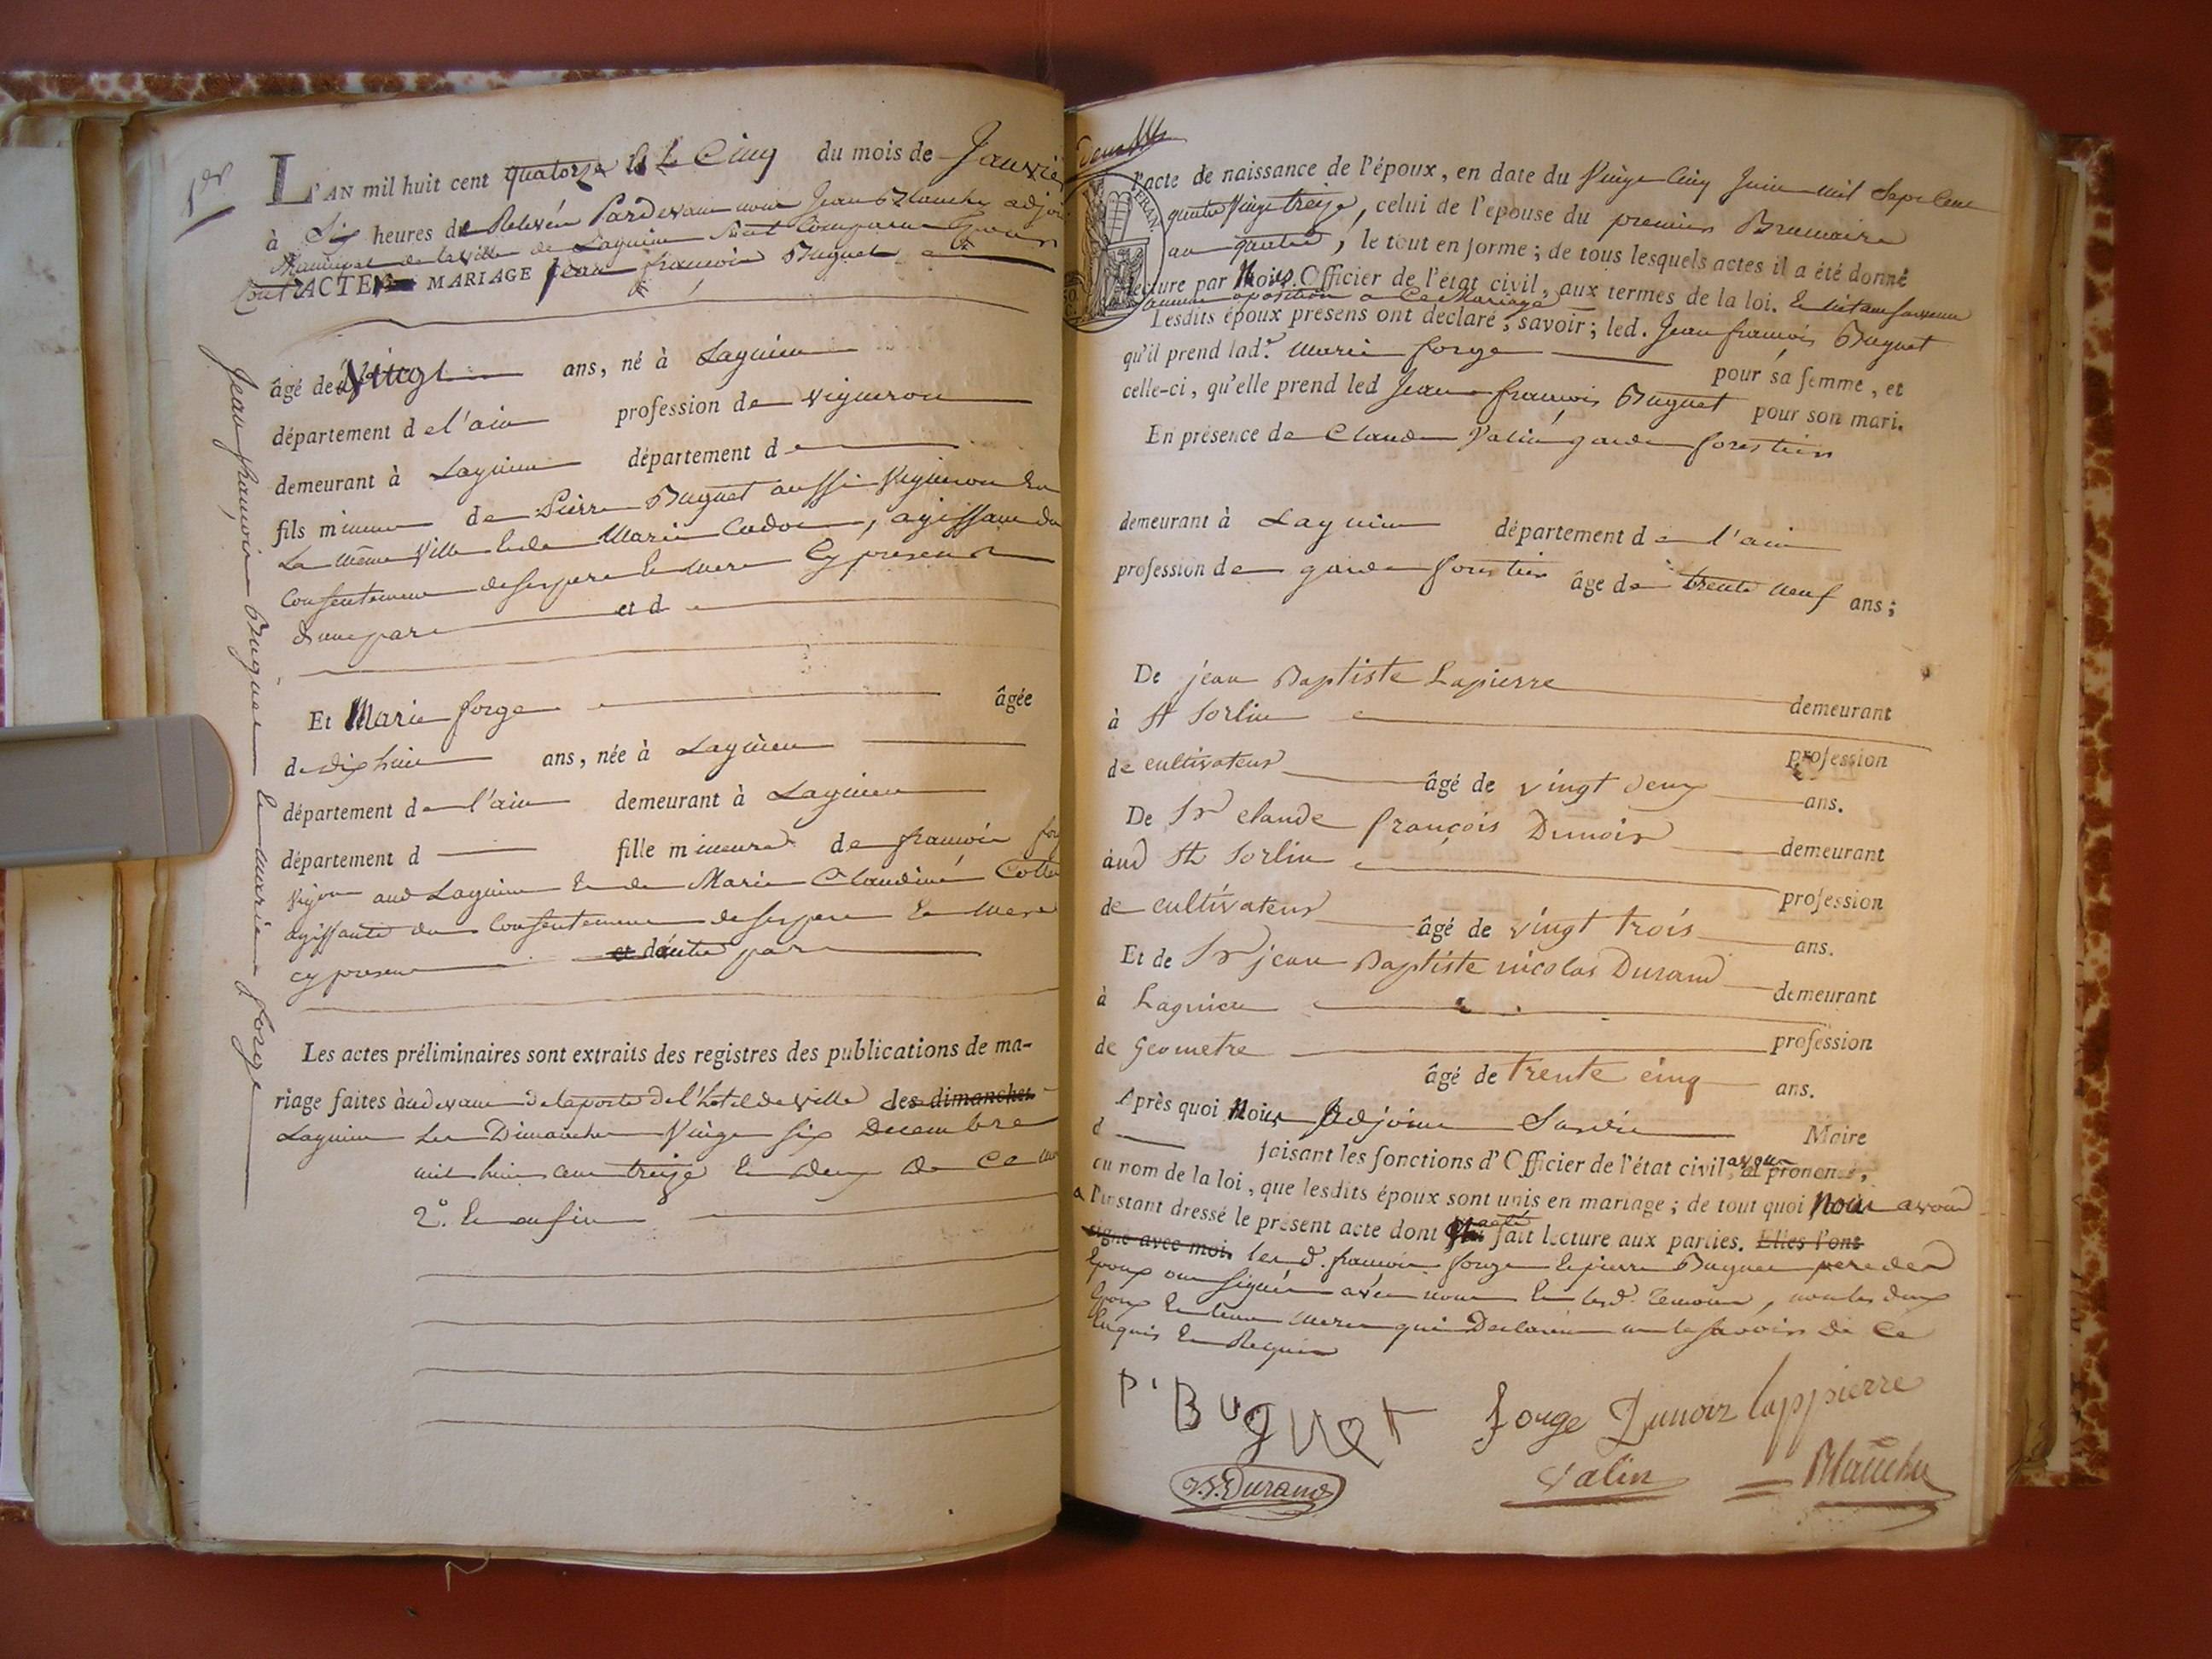 1er
L'AN mil huit cent quatorze & le Cinq du mois de Janvier
à Six heures de Relevée Pardevant nous Jean Blanche adjoi
Municipal de la ville de Lagnieu Sont Comparus
ACTE MARIAGE Jean françois Buguet
âgé de Vingt ans, né à Lagnieu
département de l'ain profession de vigneron
demeurant à Lagnieu département d
fils mineur de Pierre Buguet aussi Vigneron En
La même Ville & de Marie Cadoz, agissant du
Consentement de ses pere & mere Cy presents
d'une part et d
Et Marie forge âgée
de dix huit ans, née à Lagnieu
département de l'ain demeurant à Lagnieu
département d fille mineure de francois for
Vigon aud Lagnieu & de Marie Claudine Cotte
agissante du Consentement de ses pere & mere
cy presents et d'autre part
Les actes préliminaires sont extraits des registres des publications de ma-
riage faites au devant de la porte de l'hotel de ville des dimanches
Lagnieu les Dimanches Vingt six Decembre
mil huit cent treize & deux de Ce mo
2°. & enfin
Jean francois Buguet & marie forge
deux
l'acte de naissance de l'époux, en date du Vingt Cinq Juin mil Sept Cent
quatre Vingt treize, celui de l'épouse du premier Brumaire
an quatre, le tout en forme; de tous lesquels actes il a été donné
lecture par Nous Officier de l'état civil, aux termes de la loi. & n'étant survenu
aucune oposition a Ce Mariage
Lesdits époux présens ont déclaré, savoir; led. Jean francois Buguet
qu'il prend lade. Marie forge pour sa femme, et
celle-ci, qu'elle prend led Jean francois Buguet pour son mari.
En présence de Claude Valin garde forestier
demeurant à Lagnieu département de l'ain
profession de garde forestier âgé de trente neuf ans;
De jean Baptiste Lapierre demeurant
à St Sorlin profession
de cultivateur âgé de vingt deux ans.
De Sr claude françois Dunoir demeurant
aud St Sorlin profession
de cultivateur âgé de vingt trois ans.
Et de Sr jean Baptiste nicolas Durand demeurant
à Lagnieu profession
de Geometre âgé de trente cinq ans.
Après quoi Nous Adjoint Susdit Maire
d faisant les fonctions d'Officier de l'état civil, avons prononcé,
au nom de la loi, que lesdits époux sont unis en mariage; de tout quoi Nous avons
a l'instant dressé le présent acte dont a été fait lecture aux parties. Elles l'ont
signé avec moi. les d. francois forge & pierre Buguet pere des
Epoux ont Signés avec nous & lesd. Temoins, non les deux
Epoux & leurs meres qui Declarent ne le savoir de Ce
Enquis & Requis
P. BugUet forge Dunoir lappierre
J.N. Durand Valin Blanche